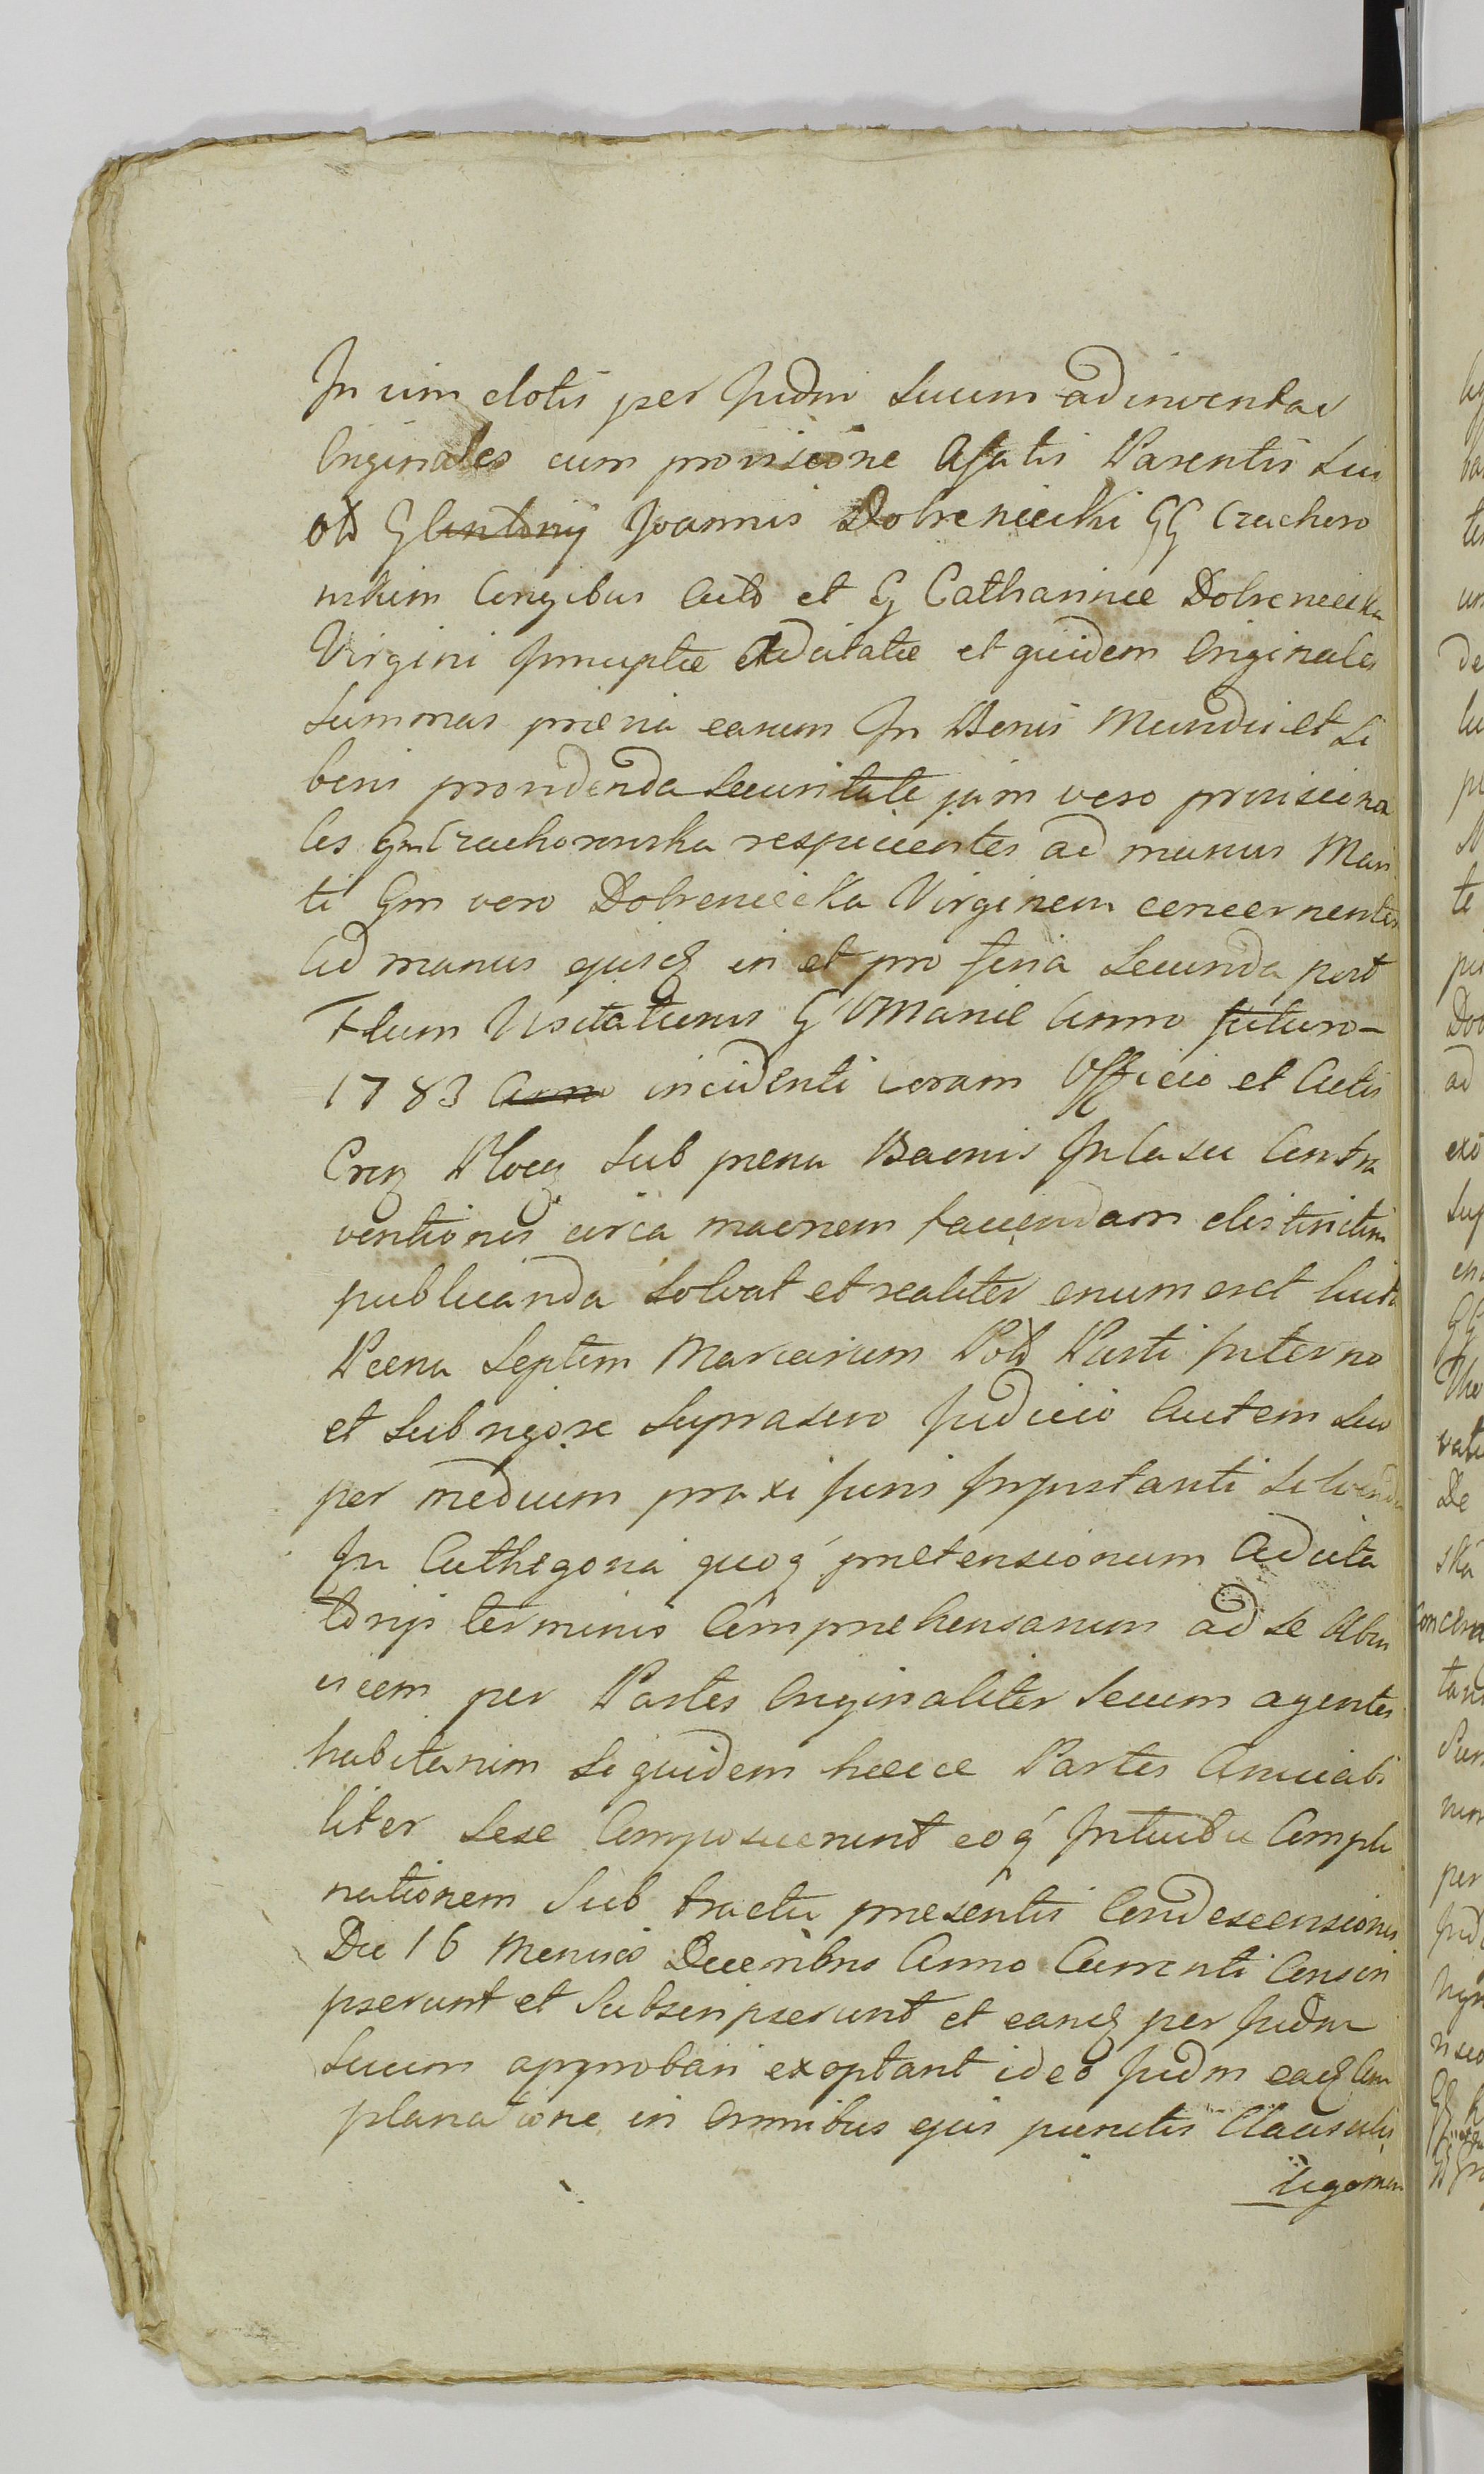 In vim dotis per Judm Suum adinventas
Originales cum provisione a fatis Parentis Sui
olb G Antonij Joannis Dobreniecki GG Czachoro
wskim Conjibus Actb et G Catharinae Dobreniecka
Virgini Innuptae Adcitatae et quidem Originales
Summas praevia earum In Bonis Mundis et Li
beris providenda Securitate jam vero provisiona
les Gm Czachorowska respicientes ad manus Mari
ti Gm vero Dobreniecka Virginem concernentes
Ad manus ejusq in et pro feria Secunda post
Ftum Visitationis G V Mariae Anno futuro
1783 Anno incidenti coram Officio et Actis
Cren Plocen Sub poena Baenis In Casu Contra
ventionis circa maenem faciendam districtim
publicanda Solvat et realiter enumeret luita
Poena Septem Marcarum Polb Parti Interno
et Sub rigore Suprascro Judicio Autem Suo
per medium praxi Juris Injustanti Solvenda
In Cathegoria quoq praetensionum Adcita
torijs terminis Comprehensarum ad se Abin
vicem per Partes Originaliter Secum agentes
habitarum Siquidem haecce Partes Amicabi
liter Sese Composuerunt eoq Intuitu Compla
nationem Sub tractu praesentis Condescensionis
Die 16 Mensis Decembris Anno Currenti Conscri
pserunt et Subscripserunt et eandq per Judm
Suum approbari exoptant ideo Judm eadq Com
planatione in Omnibus ejus punctis Clausulis